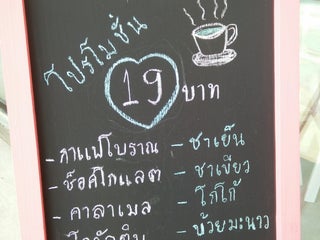 โปรโมชั่น
19 บาท
- กาแฟโบราณ
- ช็อคโกแลต
- คาลาเมล
- ชาเย็น
- ชาเขียว
- โกโก้
- บ๊วยมะนาว